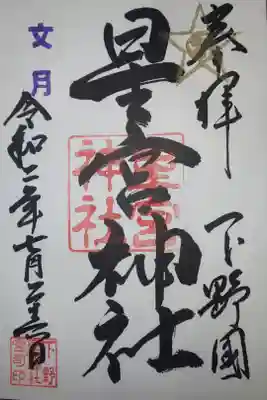 奉拝
下野國
星宮神社
星宮
神社
文月
令和二年七月二十五日
下野